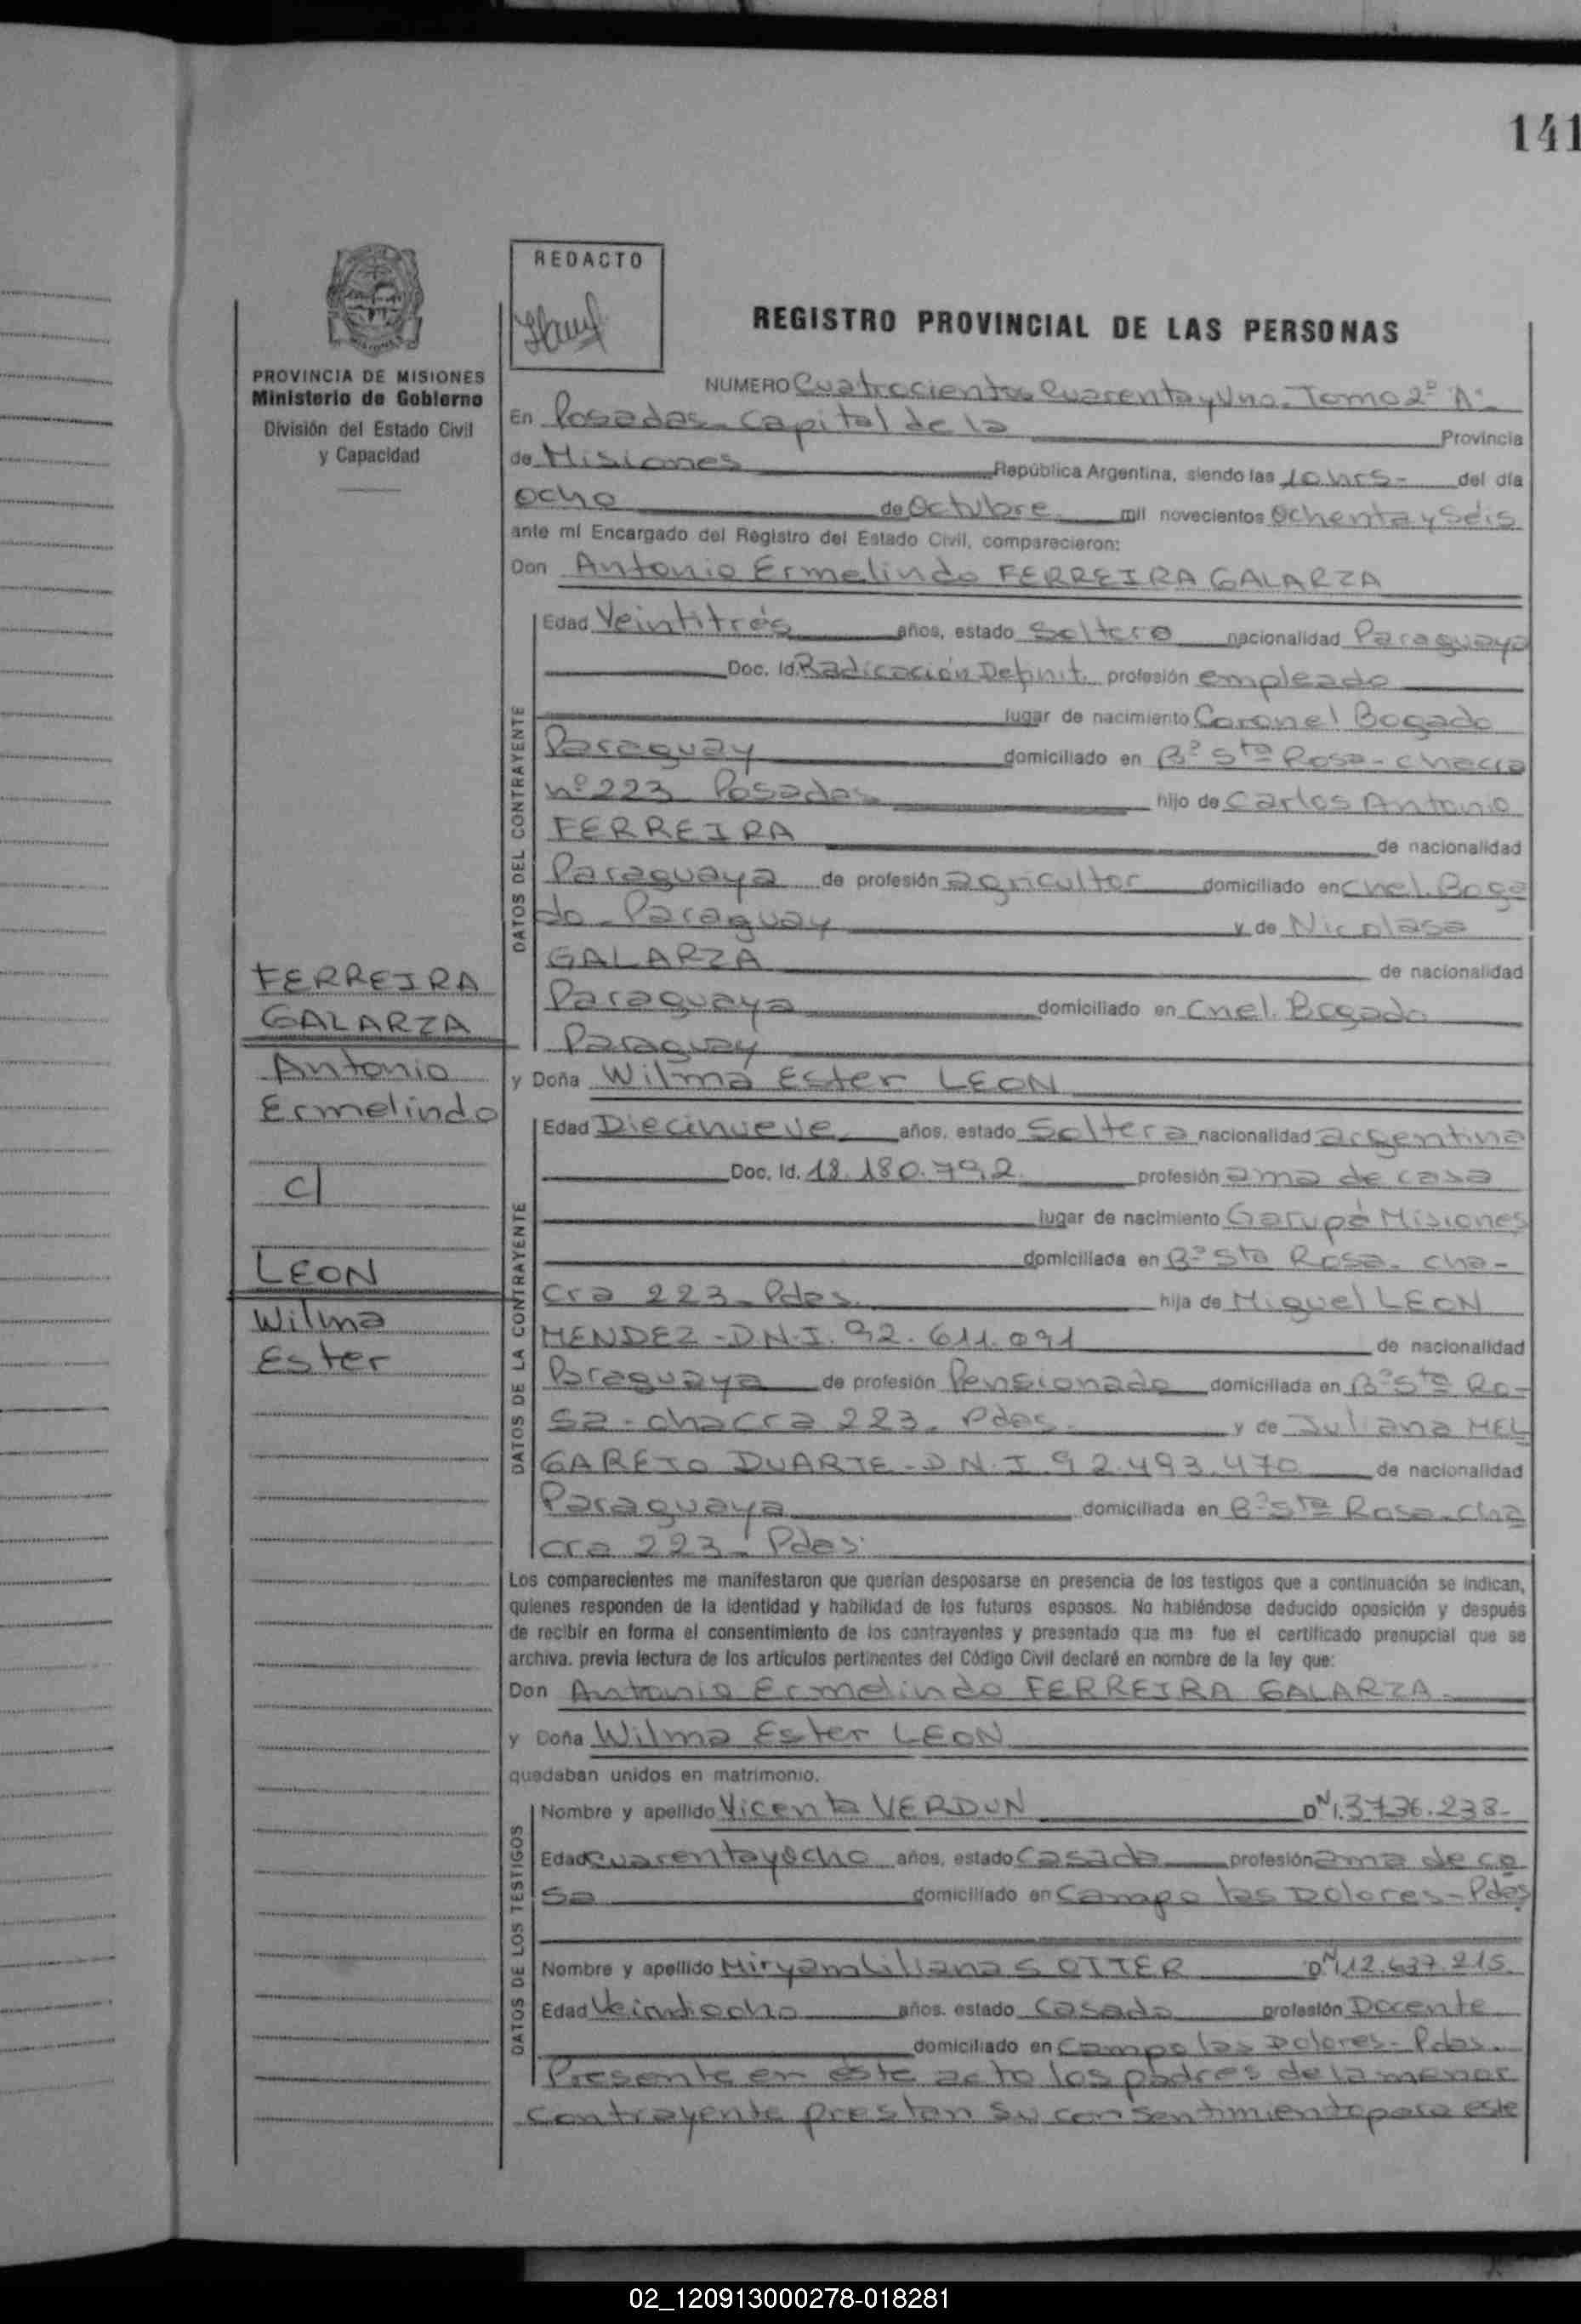 141
REDACTO
REGISTRO PROVINCIAL DE LAS PERSONAS
PROVINCIA DE MISIONES
Ministerio de Gobierno
División del Estado Civil
y Capacidad
NUMERO Cuatrocientos Cuarenta y Uno. Tomo 2º "A"
En Posadas Capital de la Provincia
de Misiones República Argentina, siendo las 10 hrs- del día
ocho de Octubre mil novecientos Ochenta y Seis
ante mí Encargado del Registro del Estado Civil, comparecieron:
Don Antonio Ermelindo FERREIRA GALARZA
DATOS DEL CONTRAYENTE
Edad Veintitrés años, estado Soltero nacionalidad Paraguaya
Doc. Id. Radicación Definit. profesión empleado
lugar de nacimiento Coronel Bogado
Paraguay domiciliado en Bº Sta Rosa - chacra
nº 223 Posadas hijo de Carlos Antonio
FERREIRA de nacionalidad
Paraguaya de profesión agricultor domiciliado en Cnel. Boga
do - Paraguay y de Nicolasa
GALARZA de nacionalidad
Paraguaya domiciliado en Cnel. Bogado
Paraguay
FERREIRA
GALARZA
Antonio
Ermelindo
c/
LEON
Wilma
Ester
y Doña Wilma Ester LEON
DATOS DE LA CONTRAYENTE
Edad Diecinueve años, estado Soltera nacionalidad argentina
Doc. Id. 18.180.792 profesión ama de casa
lugar de nacimiento Garupá Misiones
domiciliada en Bº Sta Rosa - cha-
cra 223 - Pdas. hija de Miguel LEON
MENDEZ - D.N.I. 92.611.091 de nacionalidad
Paraguaya de profesión Pensionado domiciliada en Bº Sta Ro-
sa - chacra 223. Pdas. y de Juliana MEL
GAREJO DUARTE - D.N.I. 92.493.470 de nacionalidad
Paraguaya domiciliada en Bº Sta Rosa - cha
cra 223 - Pdas.
Los comparecientes me manifestaron que querían desposarse en presencia de los testigos que a continuación se indican,
quienes responden de la identidad y habilidad de los futuros esposos. No habiéndose deducido oposición y después
de recibir en forma el consentimiento de los contrayentes y presentado que me fue el certificado prenupcial que se
archiva. previa lectura de los artículos pertinentes del Código Civil declaré en nombre de la ley que:
Don Antonio Ermelindo FERREIRA GALARZA
y Doña Wilma Ester LEON
quedaban unidos en matrimonio.
DATOS DE LOS TESTIGOS
Nombre y apellido Vicenta VERDUN DNI. 3.736.238-
Edad cuarenta y ocho años, estado Casada profesión ama de ca
sa domiciliado en Campo las Dolores - Pdas
Nombre y apellido Miryam Liliana SOTTER DNI 12.637.215.
Edad Veintiocho años. estado Casada profesión Docente
domiciliado en Campo las Dolores - Pdas.
Presente en este acto los padres de la menor
contrayente prestan su consentimiento para este
02_120913000278-018281